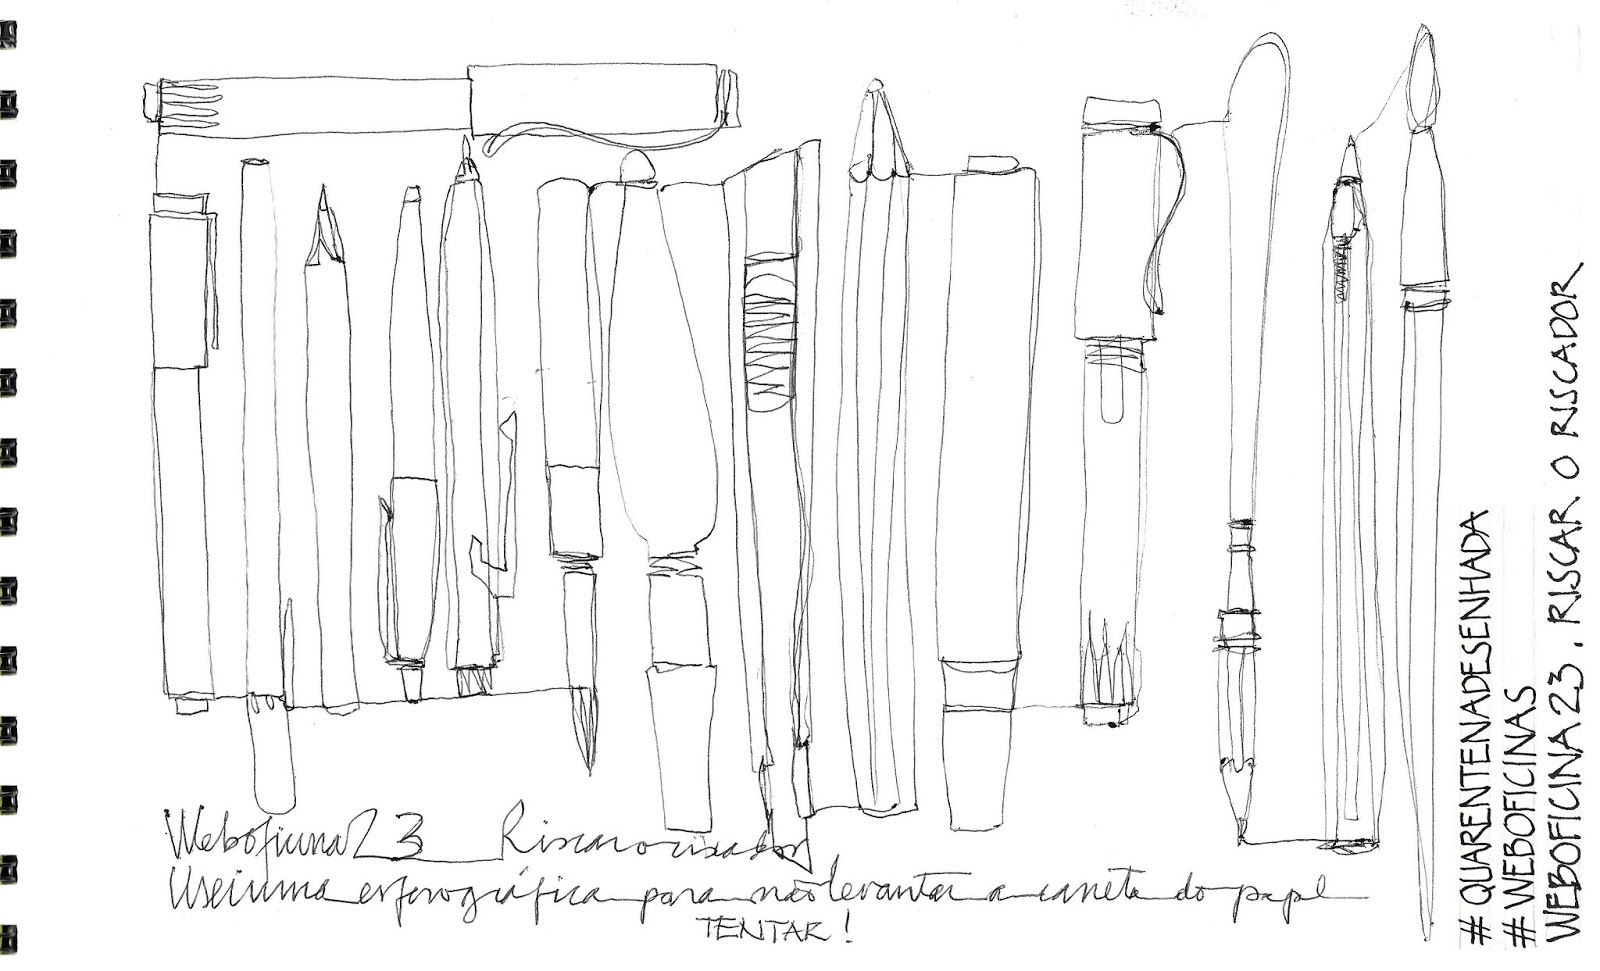 Weboficina23 Riscaroriscador
Useiuma esferográfica para não levantar a caneta do papel
TENTAR!
#QUARENTENADESENHADA
#WEBOFICINAS
WEBOFICINA23. RISCAR O RISCADOR